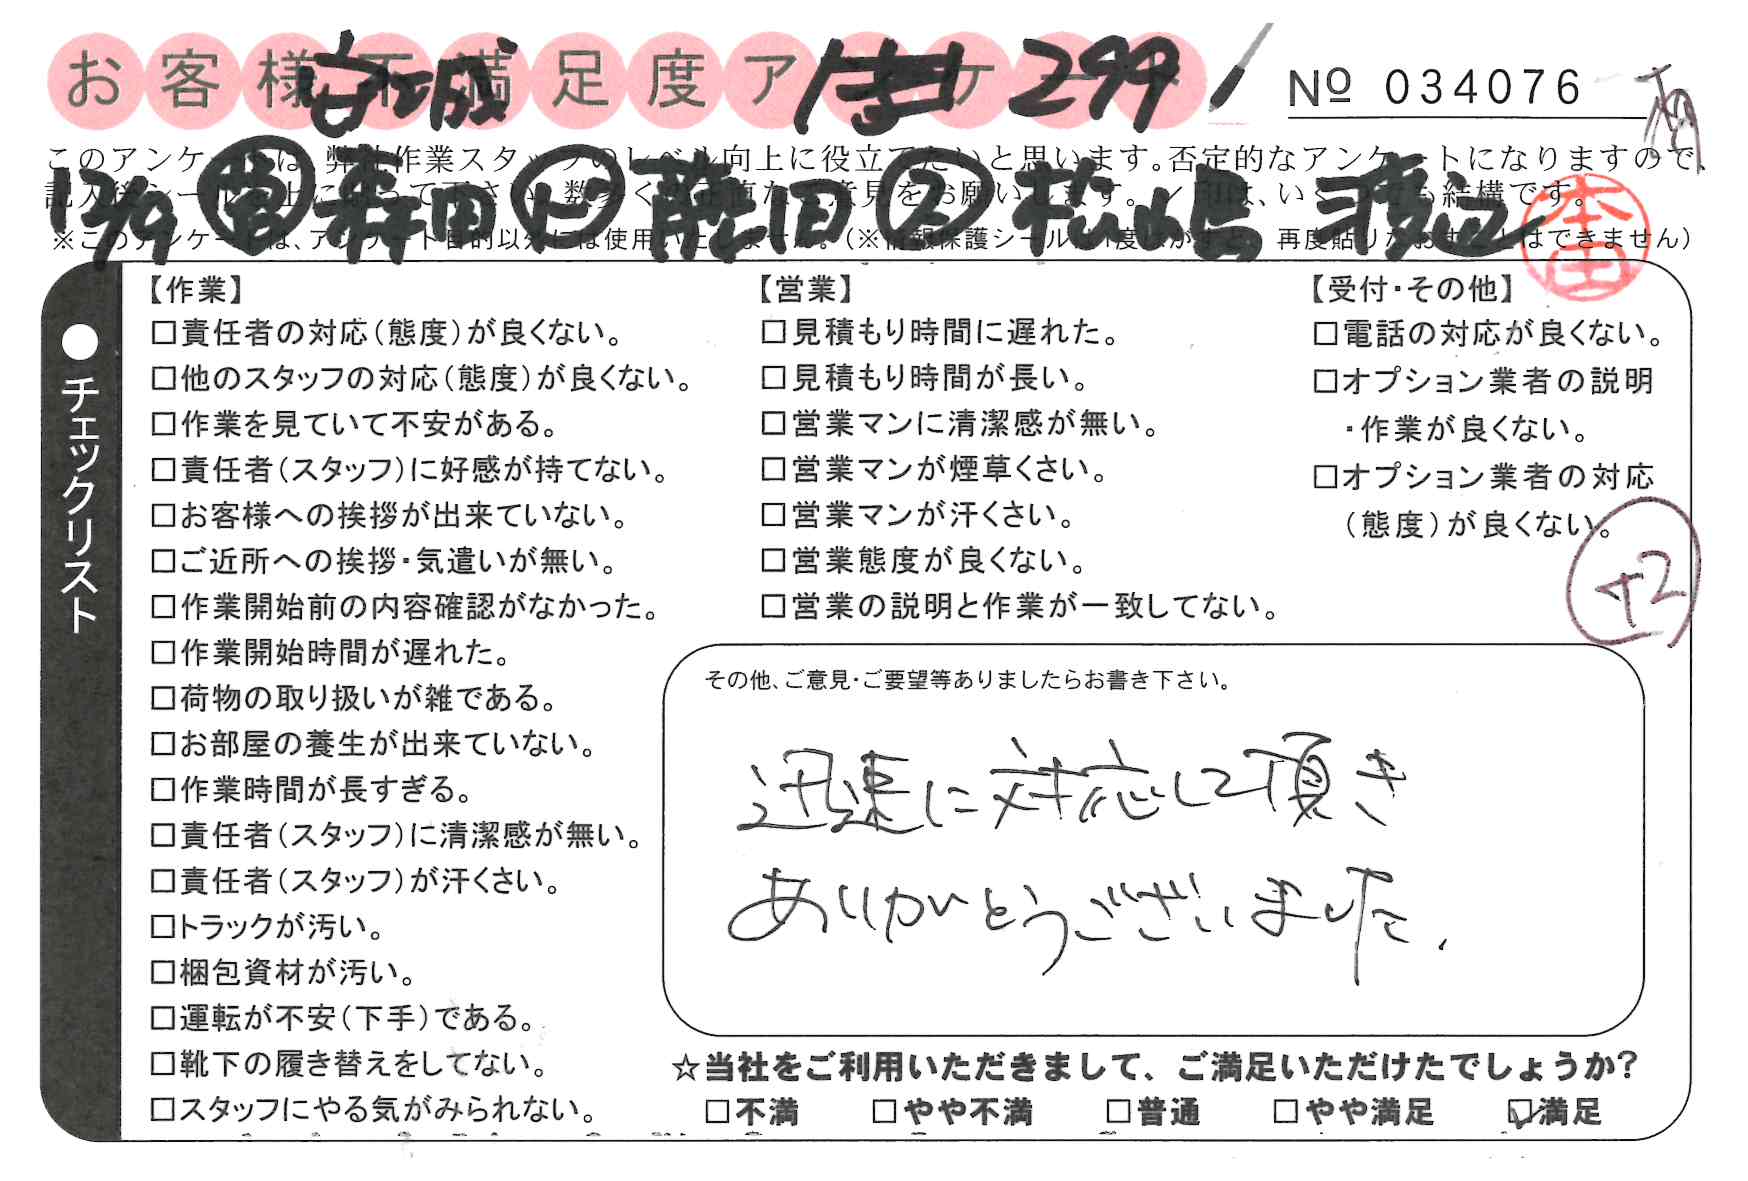 お客様不満足度アンケート
Nº 034076
宮城 1まい 299
このアンケートは、弊社作業スタッフのレベル向上に役立てたいと思います。否定的なアンケートになりますので、
記入後シールを上にはって下さい。数多くの正直なご意見をお願いします。✓印は、いくつでも結構です。
※このアンケートは、アンケート目的以外には使用いたしません。(※情報保護シールは1度はがすと、再度貼りなおすことはできません)
12/9 営 森田 ド 藤田 ス 松嶋 渡辺
本田
●チェックリスト
【作業】
□責任者の対応(態度)が良くない。
□他のスタッフの対応(態度)が良くない。
□作業を見ていて不安がある。
□責任者(スタッフ)に好感が持てない。
□お客様への挨拶が出来ていない。
□ご近所への挨拶・気遣いが無い。
□作業開始前の内容確認がなかった。
□作業開始時間が遅れた。
□荷物の取り扱いが雑である。
□お部屋の養生が出来ていない。
□作業時間が長すぎる。
□責任者(スタッフ)に清潔感が無い。
□責任者(スタッフ)が汗くさい。
□トラックが汚い。
□梱包資材が汚い。
□運転が不安(下手)である。
□靴下の履き替えをしてない。
□スタッフにやる気がみられない。
【営業】
□見積もり時間に遅れた。
□見積もり時間が長い。
□営業マンに清潔感が無い。
□営業マンが煙草くさい。
□営業マンが汗くさい。
□営業態度が良くない。
□営業の説明と作業が一致してない。
【受付・その他】
□電話の対応が良くない。
□オプション業者の説明
・作業が良くない。
□オプション業者の対応
(態度)が良くない。
+2
その他、ご意見・ご要望等ありましたらお書き下さい。
迅速に対応して頂き
ありがとうございました.
☆当社をご利用いただきまして、ご満足いただけたでしょうか?
□不満 □やや不満 □普通 □やや満足 ☑満足